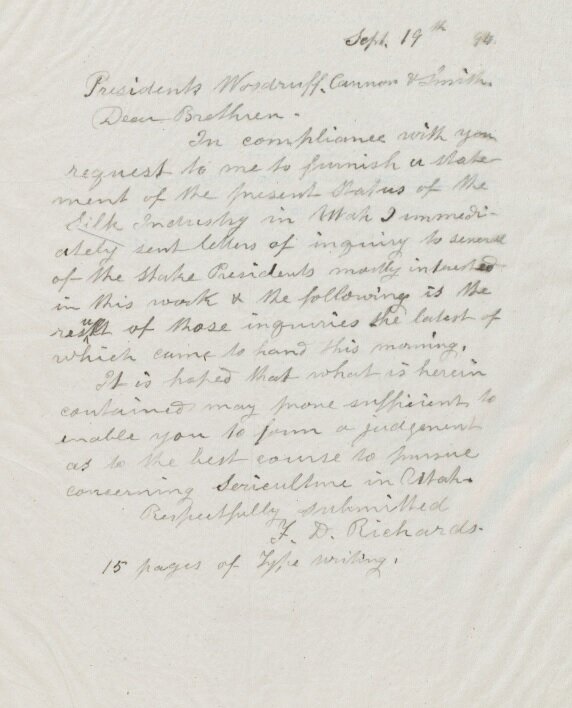 Sept. 19th 94.
Presidents Woodruff, Cannon & Smith.
Dear Brethren.
In compliance with your
request to me to furnish a state-
ment of the present Status of the
Silk Industry in Utah I immedi-
ately sent letters of inquiry to several
of the Stake Presidents mostly interested
in this work & the following is the
result of those inquiries the latest of
which came to hand this morning.
It is hoped that what is herein
contained may prove sufficient to
enable you to form a judgement
as to the best course to pursue
concerning Sericulture in Utah.
Respectfully submitted
F. D. Richards.
15 pages of Type writing.